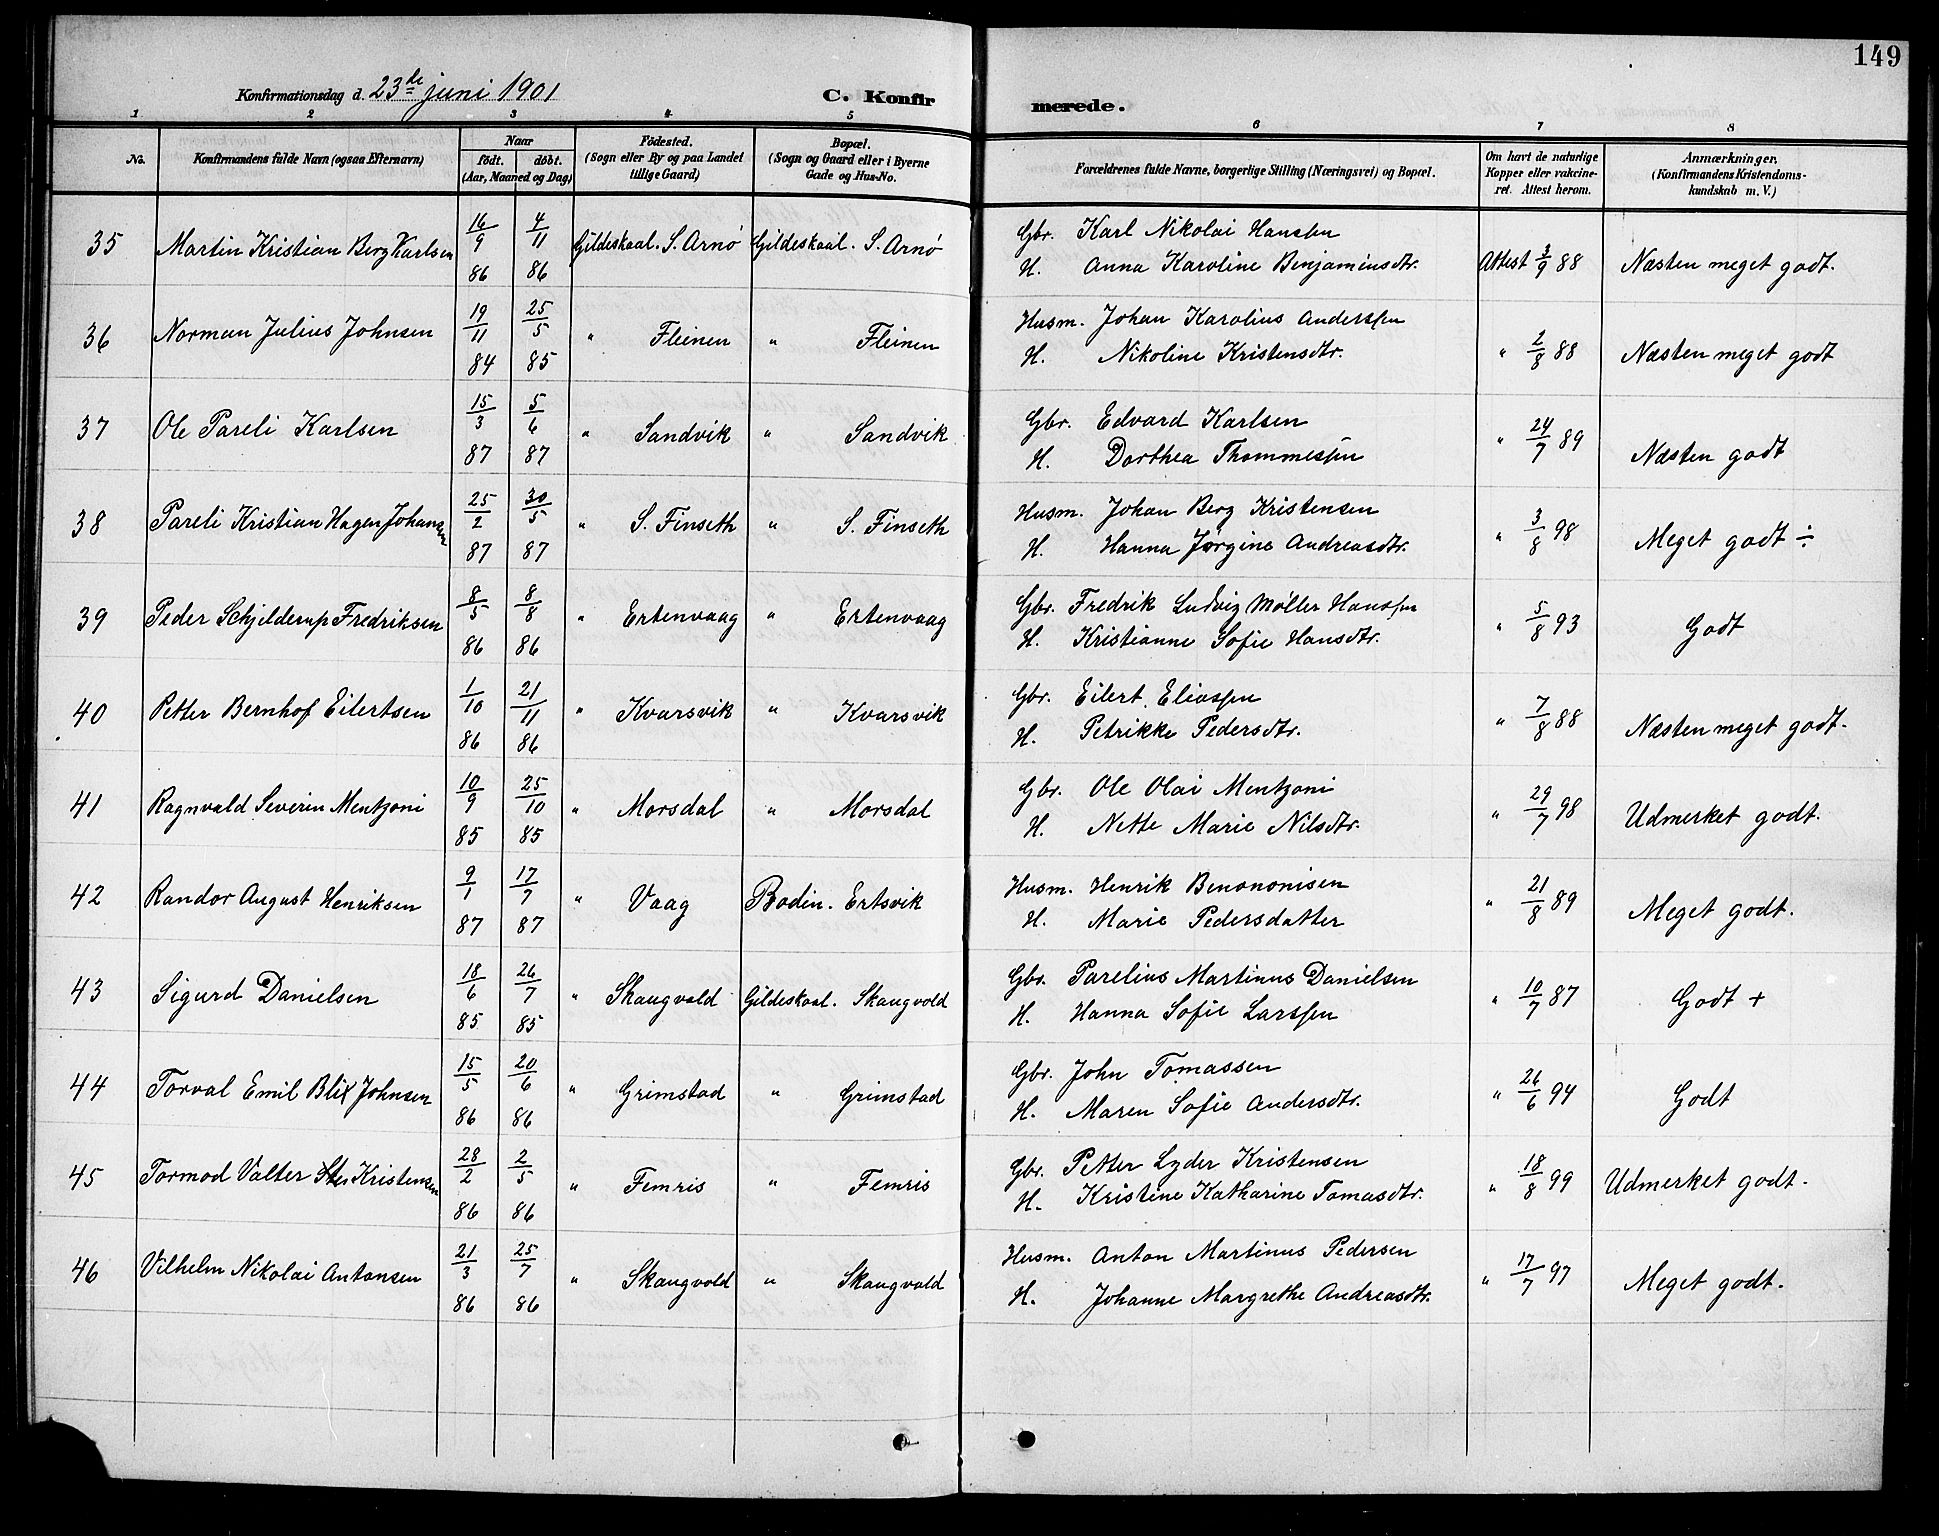 149
Konfirmationsdag d. 23de juni 1901
C. Konfirmerede.
1 2 3 4 5 6 7 8
No.
Konfirmandens fulde Navn (ogsaa Efternavn)
Naar
født. døbt.
(Aar, Maaned og Dag)
Fødested.
(Sogn eller By og paa Landet
tillige Gaard)
Bopæl.
(Sogn og Gaard eller i Byerne
Gade og Hus-No.
Forældrenes fulde Navne, borgerlige Stilling (Næringsvei) og Bopæl.
Om havt de naturlige
Kopper eller vakcine-
ret. Attest herom.
Anmærkninger.
(Konfirmandens Kristendoms-
kundskab m. V.)
35 Martin Kristian Berg Karlsen 16/9 86 4/11 86 Gildeskaal. S. Arnø Gildeskaal. S. Arnø
Gbr. Karl Nikolai Hanssen
H. Anna Karoline Benjaminsdtr. Attest 3/9 88 Næsten meget godt.
36 Norman Julius Johnsen 19/11 84 25/5 85 " Fleinen " Fleinen
Husm. Johan Karolius Anderssen
H. Nikoline Kristensdtr. " 2/8 88 Næsten meget godt
37 Ole Pareli Karlsen 15/3 87 5/6 87 " Sandvik " Sandvik
Gbr. Edvard Karlsen
H. Dorthea Thommessen " 24/7 89 Næsten godt
38 Pareli Kristian Hagen Johansen 25/2 87 30/5 87 " S. Finseth " S. Finseth
Husm. Johan Berg Kristensen
H. Hanna Jørgine Andreasdtr. " 3/8 98 Meget godt ÷
39 Peder Schjelderup Fredriksen 8/5 86 8/8 86 " Ertenvaag " Ertenvaag
Gbr. Fredrik Ludvig Møller Hanssen
H. Kristianne Sofie Hansdtr. " 5/8 93 Godt
40 Petter Bernhof Eilertsen 1/10 86 21/11 86 " Kvarsvik " Kvarsvik
Gbr. Eilert Eliassen
H. Petrikke Pedersdtr. " 7/8 88 Næsten meget godt.
41 Ragnvald Severin Mentzoni 10/9 85 25/10 85 " Morsdal " Morsdal
Gbr. Ole Olai Mentzoni
H. Nette Marie Nilsdtr. " 29/7 98 Udmerket godt.
42 Randor August Henriksen 9/1 87 17/7 87 " Vaag Bodin. Ertsvik
Husm. Henrik Benononisen
H. Marie Pedersdatter " 21/8 89 Meget godt.
43 Sigurd Danielsen 18/6 85 26/7 85 " Skaugvold Gildeskaal. Skaugvold
Gbr. Parelius Martinus Danielsen
H. Hanna Sofie Larssen " 10/7 87 Godt +
44 Torval Emil Blix Johnsen 15/5 86 20/6 86 " Grimstad " Grimstad
Gbr. John Tomassen
H. Maren Sofie Andersdtr. " 26/6 94 Godt
45 Tormod Valter Kristensen 28/2 86 2/5 86 " Femris " Femris
Gbr. Petter Lyder Kristensen
H. Kristine Katharine Tomasdtr. " 18/8 99 Udmerket godt.
46 Vilhelm Nikolai Antonsen 21/3 86 25/7 86 " Skaugvold " Skaugvold
Husm. Anton Martinus Pedersen
H. Johanne Margrethe Andreasdtr. " 17/7 97 Meget godt.